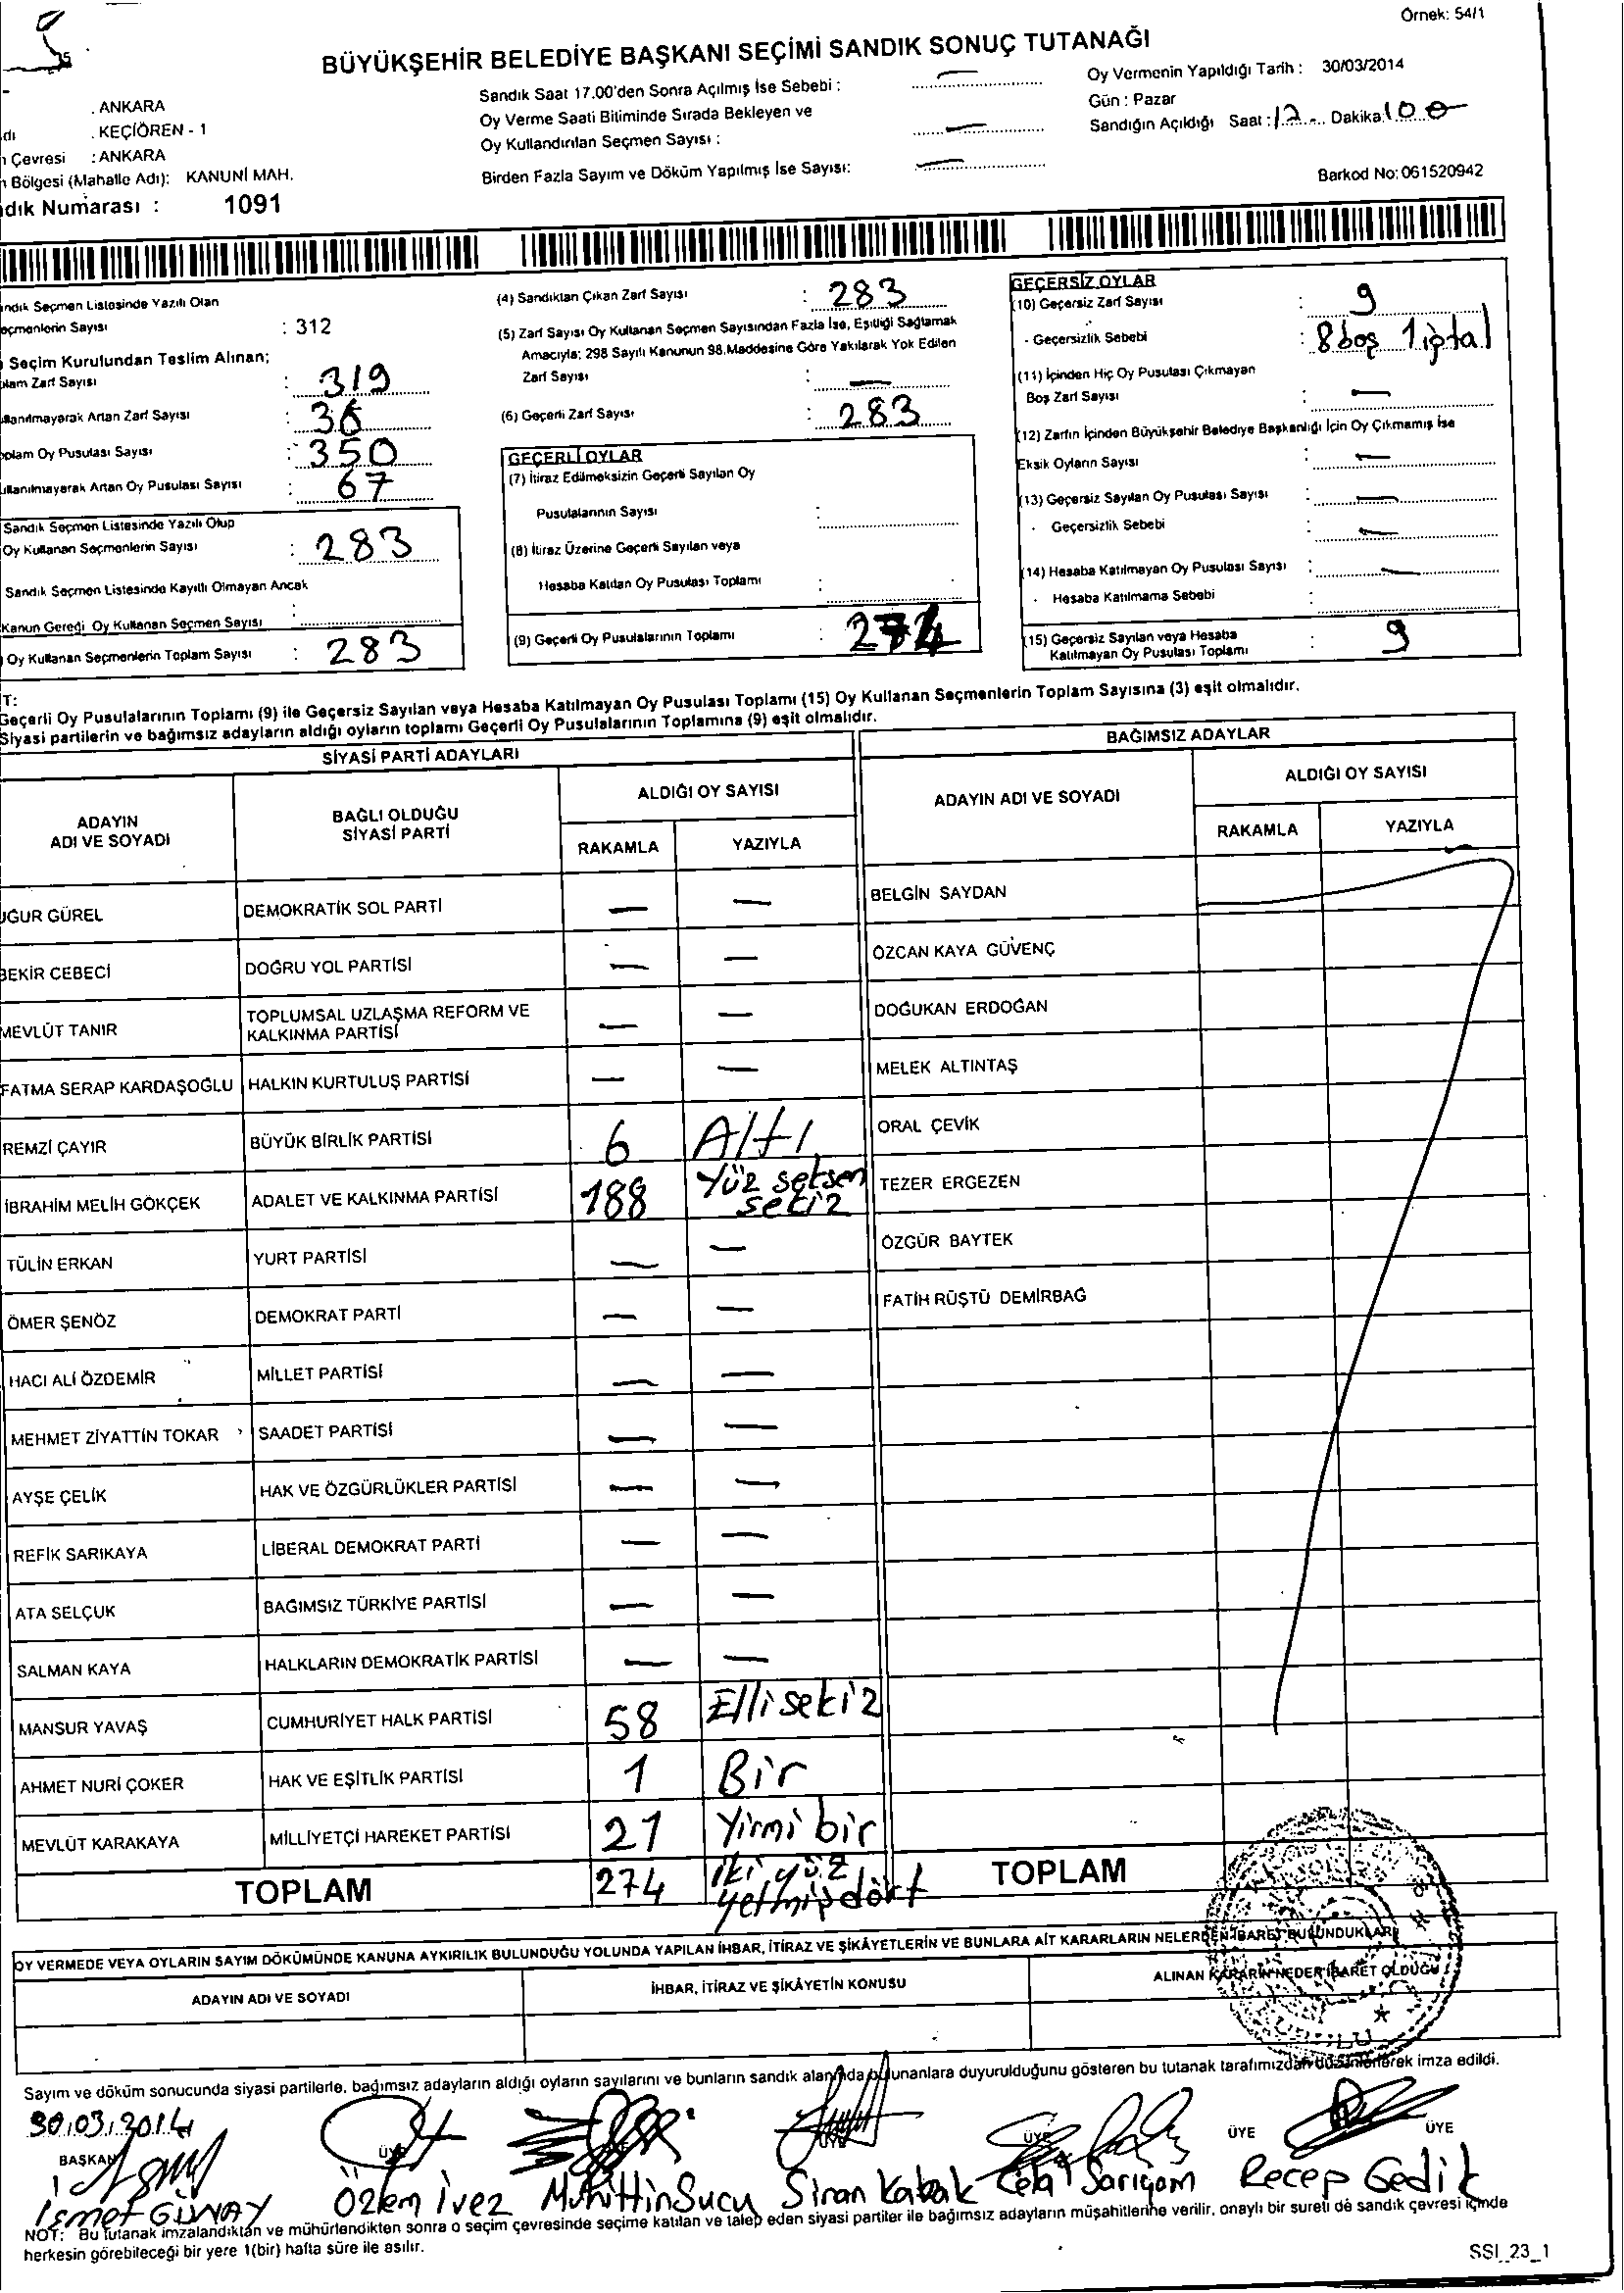 Örnek: 54/1
BÜYÜKŞEHİR BELEDİYE BAŞKANI SEÇİMİ SANDIK SONUÇ TUTANAĞI
. ANKARA
dı . KEÇİÖREN - 1
Çevresi : ANKARA
Bölgesi (Mahalle Adı): KANUNİ MAH.
dık Numarası : 1091
Sandık Saat 17.00'den Sonra Açılmış İse Sebebi : —
Oy Verme Saati Bitiminde Sırada Bekleyen ve
Oy Kullandırılan Seçmen Sayısı : —
Birden Fazla Sayım ve Döküm Yapılmış İse Sayısı: —
Oy Vermenin Yapıldığı Tarih : 30/03/2014
Gün : Pazar
Sandığın Açıldığı Saat : Dakika:
Barkod No: 061520942
ndık Seçmen Listesinde Yazılı Olan
eçmenlerin Sayısı : 312
Seçim Kurulundan Teslim Alınan;
plam Zarf Sayısı : 319
ullanılmayarak Artan Zarf Sayısı : 36
oplam Oy Pusulası Sayısı : 350
ullanılmayarak Artan Oy Pusulası Sayısı : 67
Sandık Seçmen Listesinde Yazılı Olup
Oy Kullanan Seçmenlerin Sayısı : 283
Sandık Seçmen Listesinde Kayıtlı Olmayan Ancak
Kanun Gereği Oy Kullanan Seçmen Sayısı :
Oy Kullanan Seçmenlerin Toplam Sayısı : 283
(4) Sandıktan Çıkan Zarf Sayısı : 283
(5) Zarf Sayısı Oy Kullanan Seçmen Sayısından Fazla İse, Eşitliği Sağlamak
Amacıyla; 298 Sayılı Kanunun 98.Maddesine Göre Yakılarak Yok Edilen
Zarf Sayısı : —
(6) Geçerli Zarf Sayısı : 283
GEÇERLİ OYLAR
(7) İtiraz Edilmeksizin Geçerli Sayılan Oy
Pusulalarının Sayısı :
(8) İtiraz Üzerine Geçerli Sayılan veya
Hesaba Katılan Oy Pusulası Toplamı :
(9) Geçerli Oy Pusulalarının Toplamı : 274
GEÇERSİZ OYLAR
(10) Geçersiz Zarf Sayısı : 9
- Geçersizlik Sebebi : 8 boş 1 iptal
(11) İçinden Hiç Oy Pusulası Çıkmayan
Boş Zarf Sayısı : —
(12) Zarfın İçinden Büyükşehir Belediye Başkanlığı İçin Oy Çıkmamış İse
Eksik Oyların Sayısı : —
(13) Geçersiz Sayılan Oy Pusulası Sayısı : —
- Geçersizlik Sebebi : —
(14) Hesaba Katılmayan Oy Pusulası Sayısı : —
- Hesaba Katılmama Sebebi :
(15) Geçersiz Sayılan veya Hesaba
Katılmayan Oy Pusulası Toplamı : 9
T:
Geçerli Oy Pusulalarının Toplamı (9) ile Geçersiz Sayılan veya Hesaba Katılmayan Oy Pusulası Toplamı (15) Oy Kullanan Seçmenlerin Toplam Sayısına (3) eşit olmalıdır.
Siyasi partilerin ve bağımsız adayların aldığı oyların toplamı Geçerli Oy Pusulalarının Toplamına (9) eşit olmalıdır.
SİYASİ PARTİ ADAYLARI
ADAYIN
ADI VE SOYADI
BAĞLI OLDUĞU
SİYASİ PARTİ
ALDIĞI OY SAYISI
RAKAMLA YAZIYLA
UĞUR GÜREL DEMOKRATİK SOL PARTİ — —
BEKİR CEBECİ DOĞRU YOL PARTİSİ — —
MEVLÜT TANIR TOPLUMSAL UZLAŞMA REFORM VE
KALKINMA PARTİSİ — —
FATMA SERAP KARDAŞOĞLU HALKIN KURTULUŞ PARTİSİ — —
REMZİ ÇAYIR BÜYÜK BİRLİK PARTİSİ 6 Altı
İBRAHİM MELİH GÖKÇEK ADALET VE KALKINMA PARTİSİ 188 Yüz seksen
sekiz
TÜLİN ERKAN YURT PARTİSİ — —
ÖMER ŞENÖZ DEMOKRAT PARTİ — —
HACI ALİ ÖZDEMİR MİLLET PARTİSİ — —
MEHMET ZİYATTİN TOKAR SAADET PARTİSİ — —
AYŞE ÇELİK HAK VE ÖZGÜRLÜKLER PARTİSİ — —
REFİK SARIKAYA LİBERAL DEMOKRAT PARTİ — —
ATA SELÇUK BAĞIMSIZ TÜRKİYE PARTİSİ — —
SALMAN KAYA HALKLARIN DEMOKRATİK PARTİSİ — —
MANSUR YAVAŞ CUMHURİYET HALK PARTİSİ 58 Elli sekiz
AHMET NURİ ÇOKER HAK VE EŞİTLİK PARTİSİ 1 Bir
MEVLÜT KARAKAYA MİLLİYETÇİ HAREKET PARTİSİ 21 Yirmi bir
TOPLAM 274 iki yüz
yetmiş dört
BAĞIMSIZ ADAYLAR
ADAYIN ADI VE SOYADI
ALDIĞI OY SAYISI
RAKAMLA YAZIYLA
BELGİN SAYDAN
ÖZCAN KAYA GÜVENÇ
DOĞUKAN ERDOĞAN
MELEK ALTINTAŞ
ORAL ÇEVİK
TEZER ERGEZEN
ÖZGÜR BAYTEK
FATİH RÜŞTÜ DEMİRBAĞ
TOPLAM
OY VERMEDE VEYA OYLARIN SAYIM DÖKÜMÜNDE KANUNA AYKIRILIK BULUNDUĞU YOLUNDA YAPILAN İHBAR, İTİRAZ VE ŞİKÂYETLERİN VE BUNLARA AİT KARARLARIN NELERDEN İBARET BULUNDUKLARI
ADAYIN ADI VE SOYADI
İHBAR, İTİRAZ VE ŞİKÂYETİN KONUSU
ALINAN KARARIN NEDEN İBARET OLDUĞU
Sayım ve döküm sonucunda siyasi partilerle, bağımsız adayların aldığı oyların sayılarını ve bunların sandık alanında bulunanlara duyurulduğunu gösteren bu tutanak tarafımızdan düzenlenerek imza edildi.
30.03.2014
BAŞKAN ÜYE ÜYE ÜYE ÜYE ÜYE
İsmet GÜNAY Özlem İvez Muhittin Sucu Sinan Kabak Celal Sarıçam Recep Gedik
NOT: Bu tutanak imzalandıktan ve mühürlendikten sonra o seçim çevresinde seçime katılan ve talep eden siyasi partiler ile bağımsız adayların müşahitlerine verilir, onaylı bir sureti de sandık çevresi içinde
herkesin görebileceği bir yere 1(bir) hafta süre ile asılır.
SSI_23_1